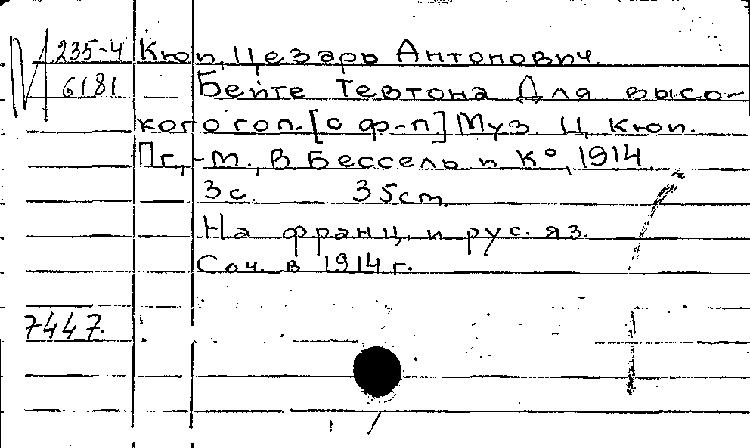 М 235-4 Кюи, Цезарь Антонович.
6181 Бейте Тевтона Для высо-
кого гол. [с ф-п] Муз. Ц. Кюи.
Пг.,-М., В. Бессель и К°, 1914
3 с. 35 cm
На франц. и рус. яз.
Соч. в 1914 г.
7447.